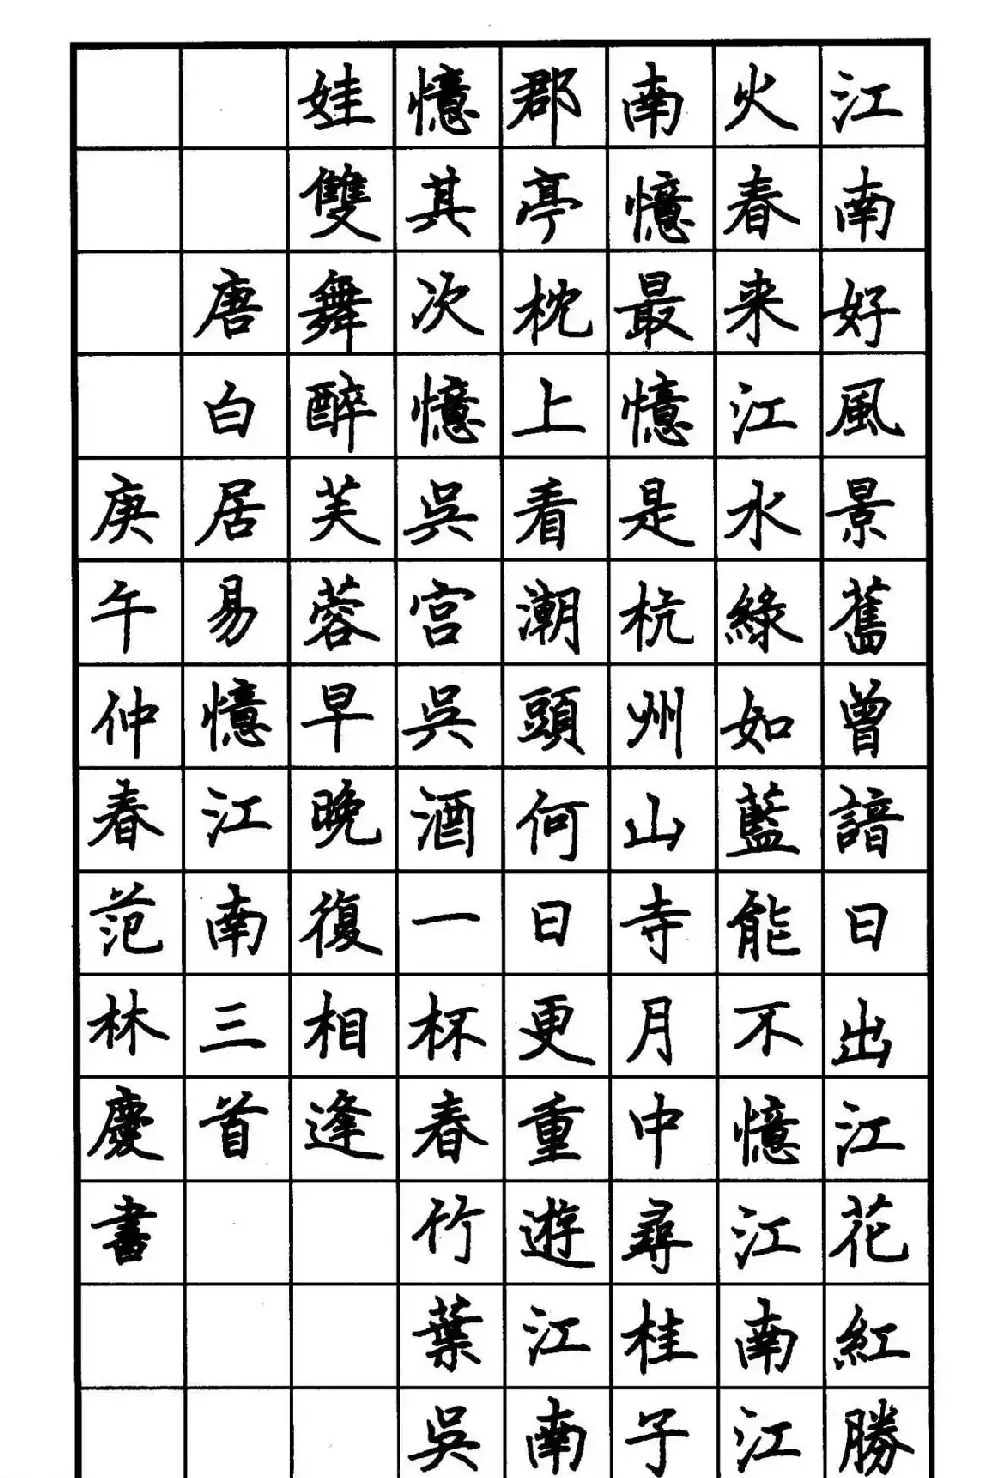 江南好風景舊曾諳日出江花紅勝
火春来江水綠如藍能不憶江南江
南憶最憶是杭州山寺月中尋桂子
郡亭枕上看潮頭何日更重遊江南
憶其次憶吳宮吳酒一杯春竹葉吳
娃雙舞醉芙蓉早晚復相逢
唐白居易憶江南三首
庚午仲春范林慶書